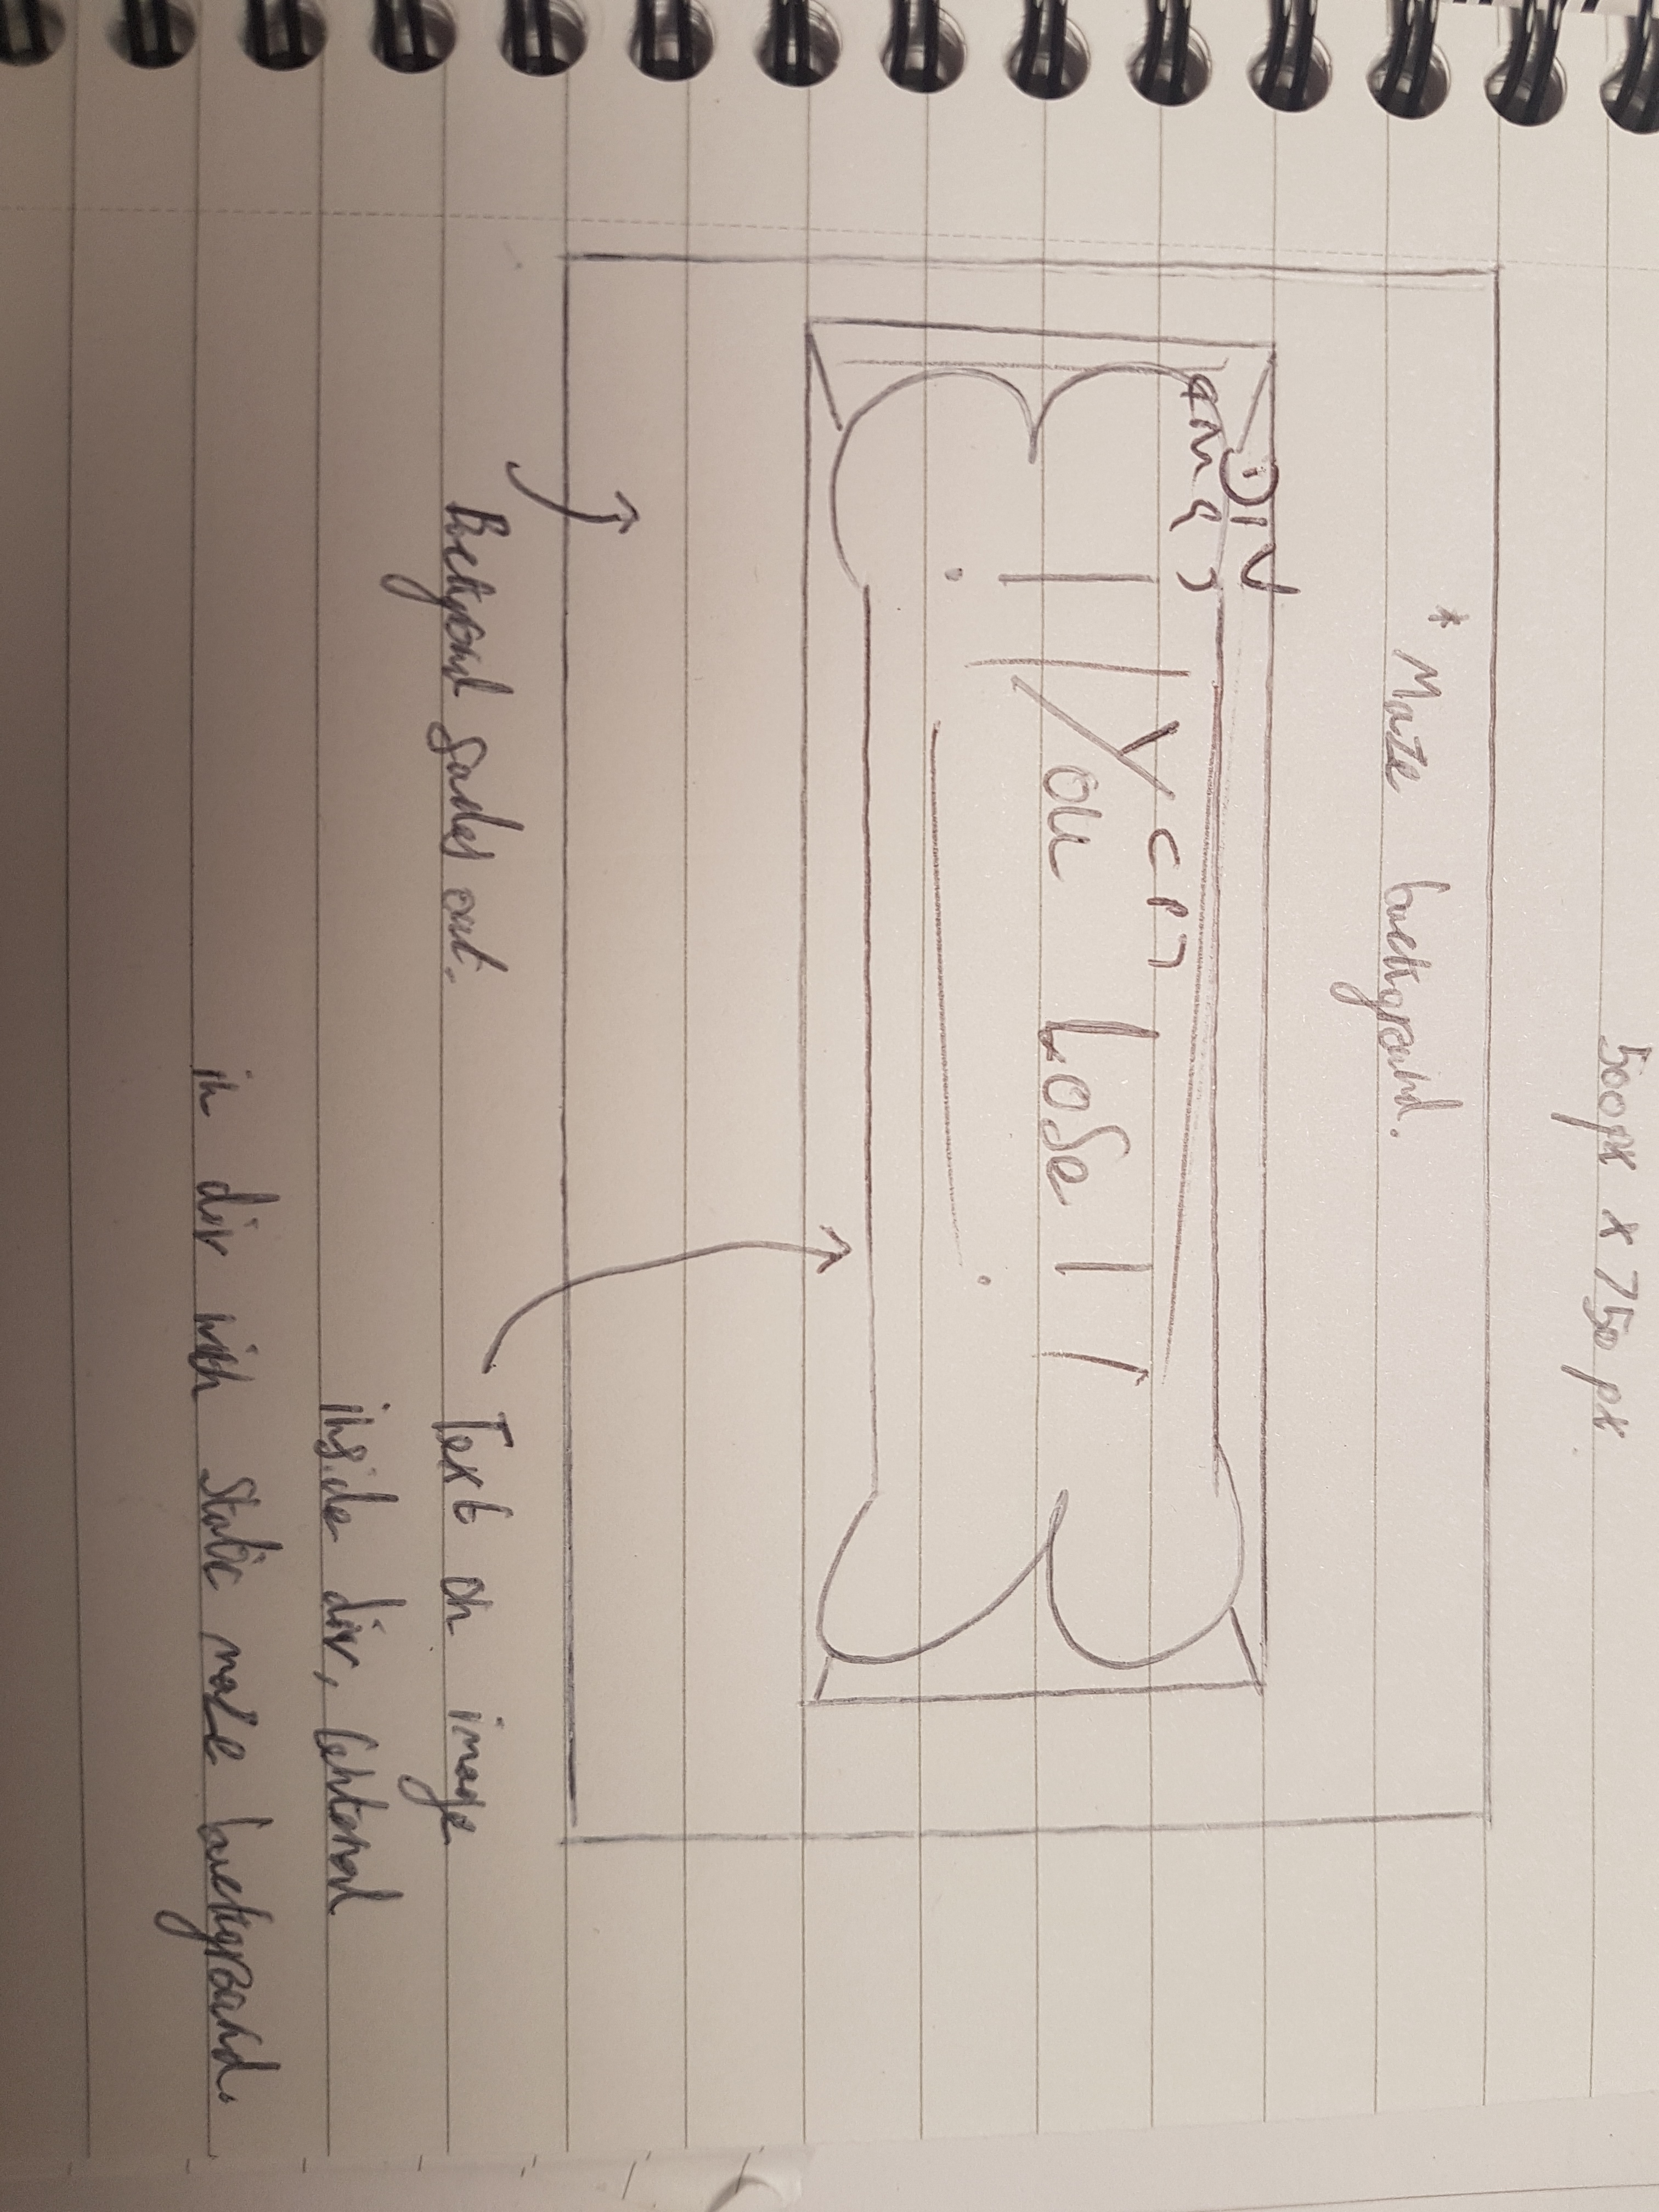 500px x 750px.
* Maze background.
DIV
You Lose
Background fades out.
Text on image
inside div, centered
in div with static maze background.